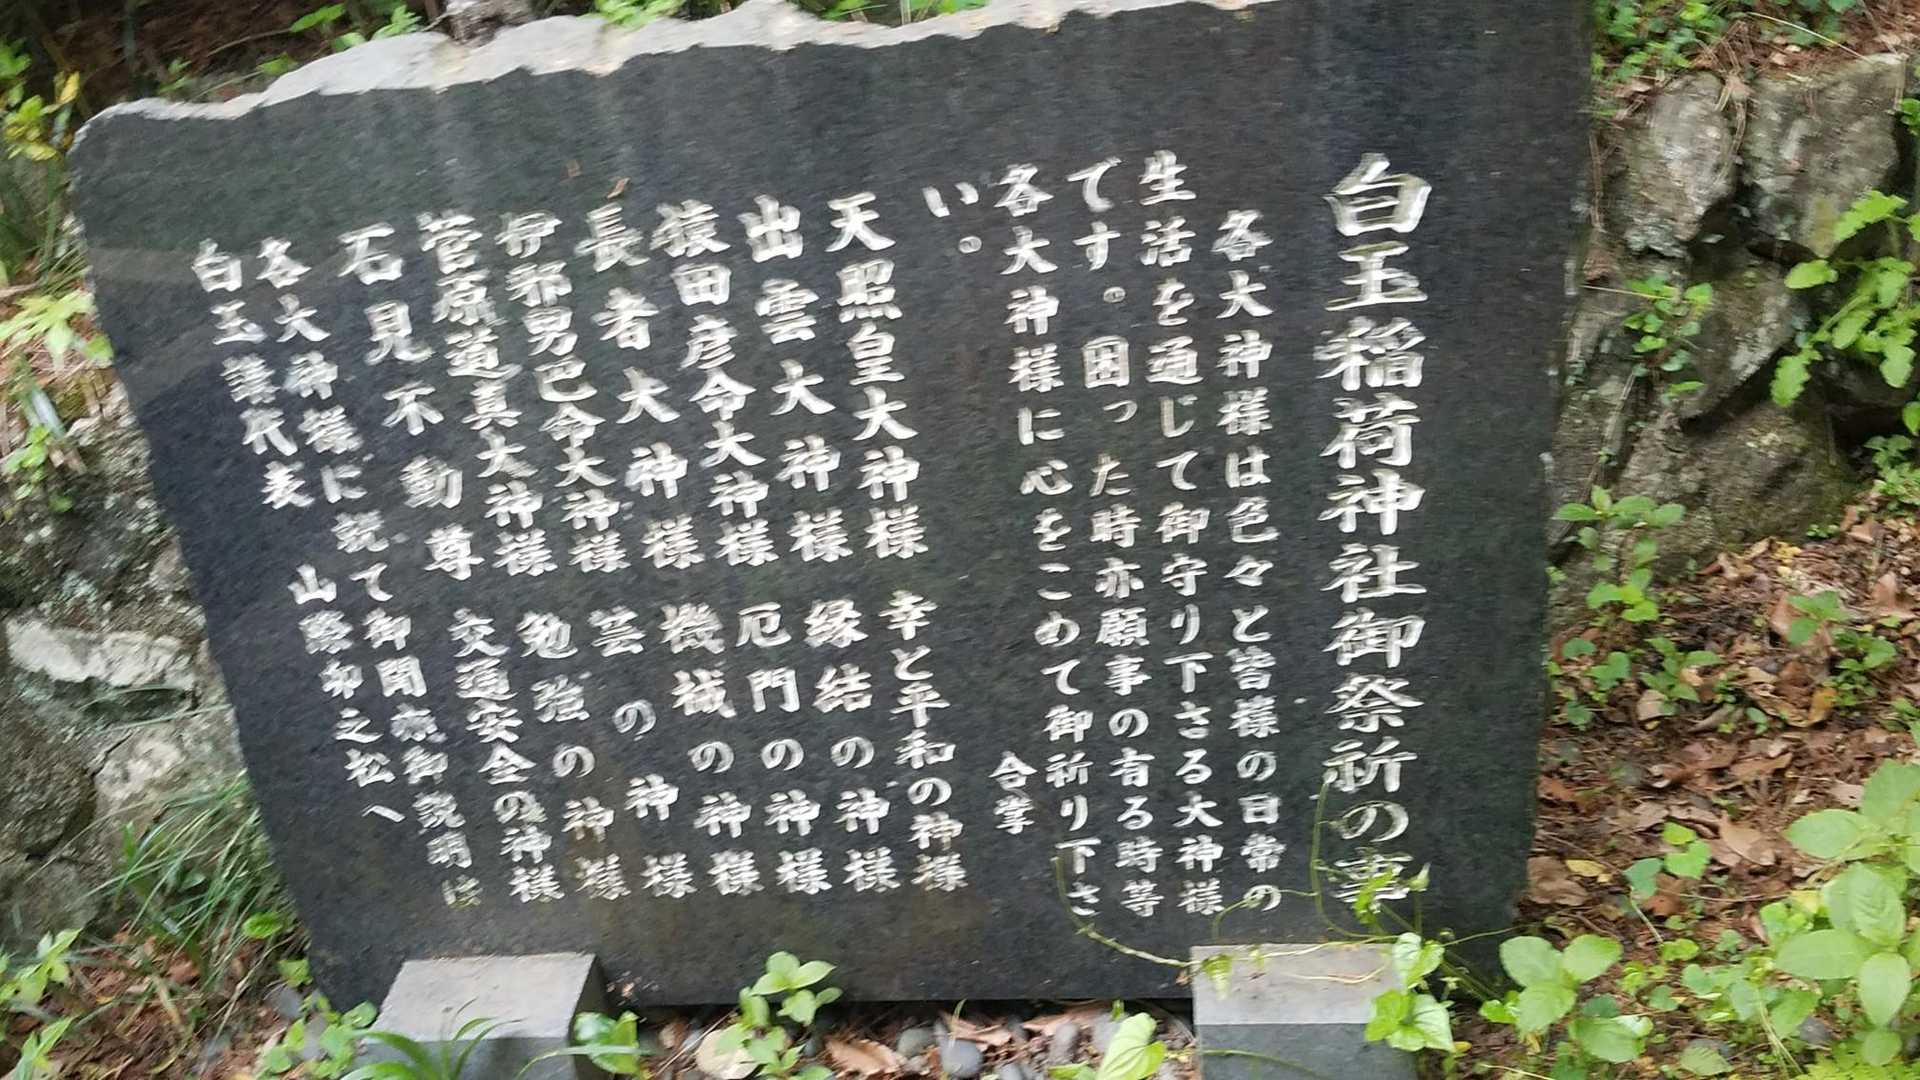 白玉稲荷神社御祭祈の事
各大神様は色々と皆様の日常の
生活を通じて御守り下さる大神様
です。困った時亦願事の有る時等
各大神様に心をこめて御祈り下さ
い。
合掌
天照皇大神様 幸と平和の神様
出雲大神様 縁結の神様
猿田彦命大神様 厄門の神様
長者大神様 機械の神様
伊邪男巳命大神様 芸の神様
菅原道真大神様 勉強の神様
石見不動尊 交通安全の神様
各大神様に就て御聞亦御説明は
白玉講代表 山 卯之松へ